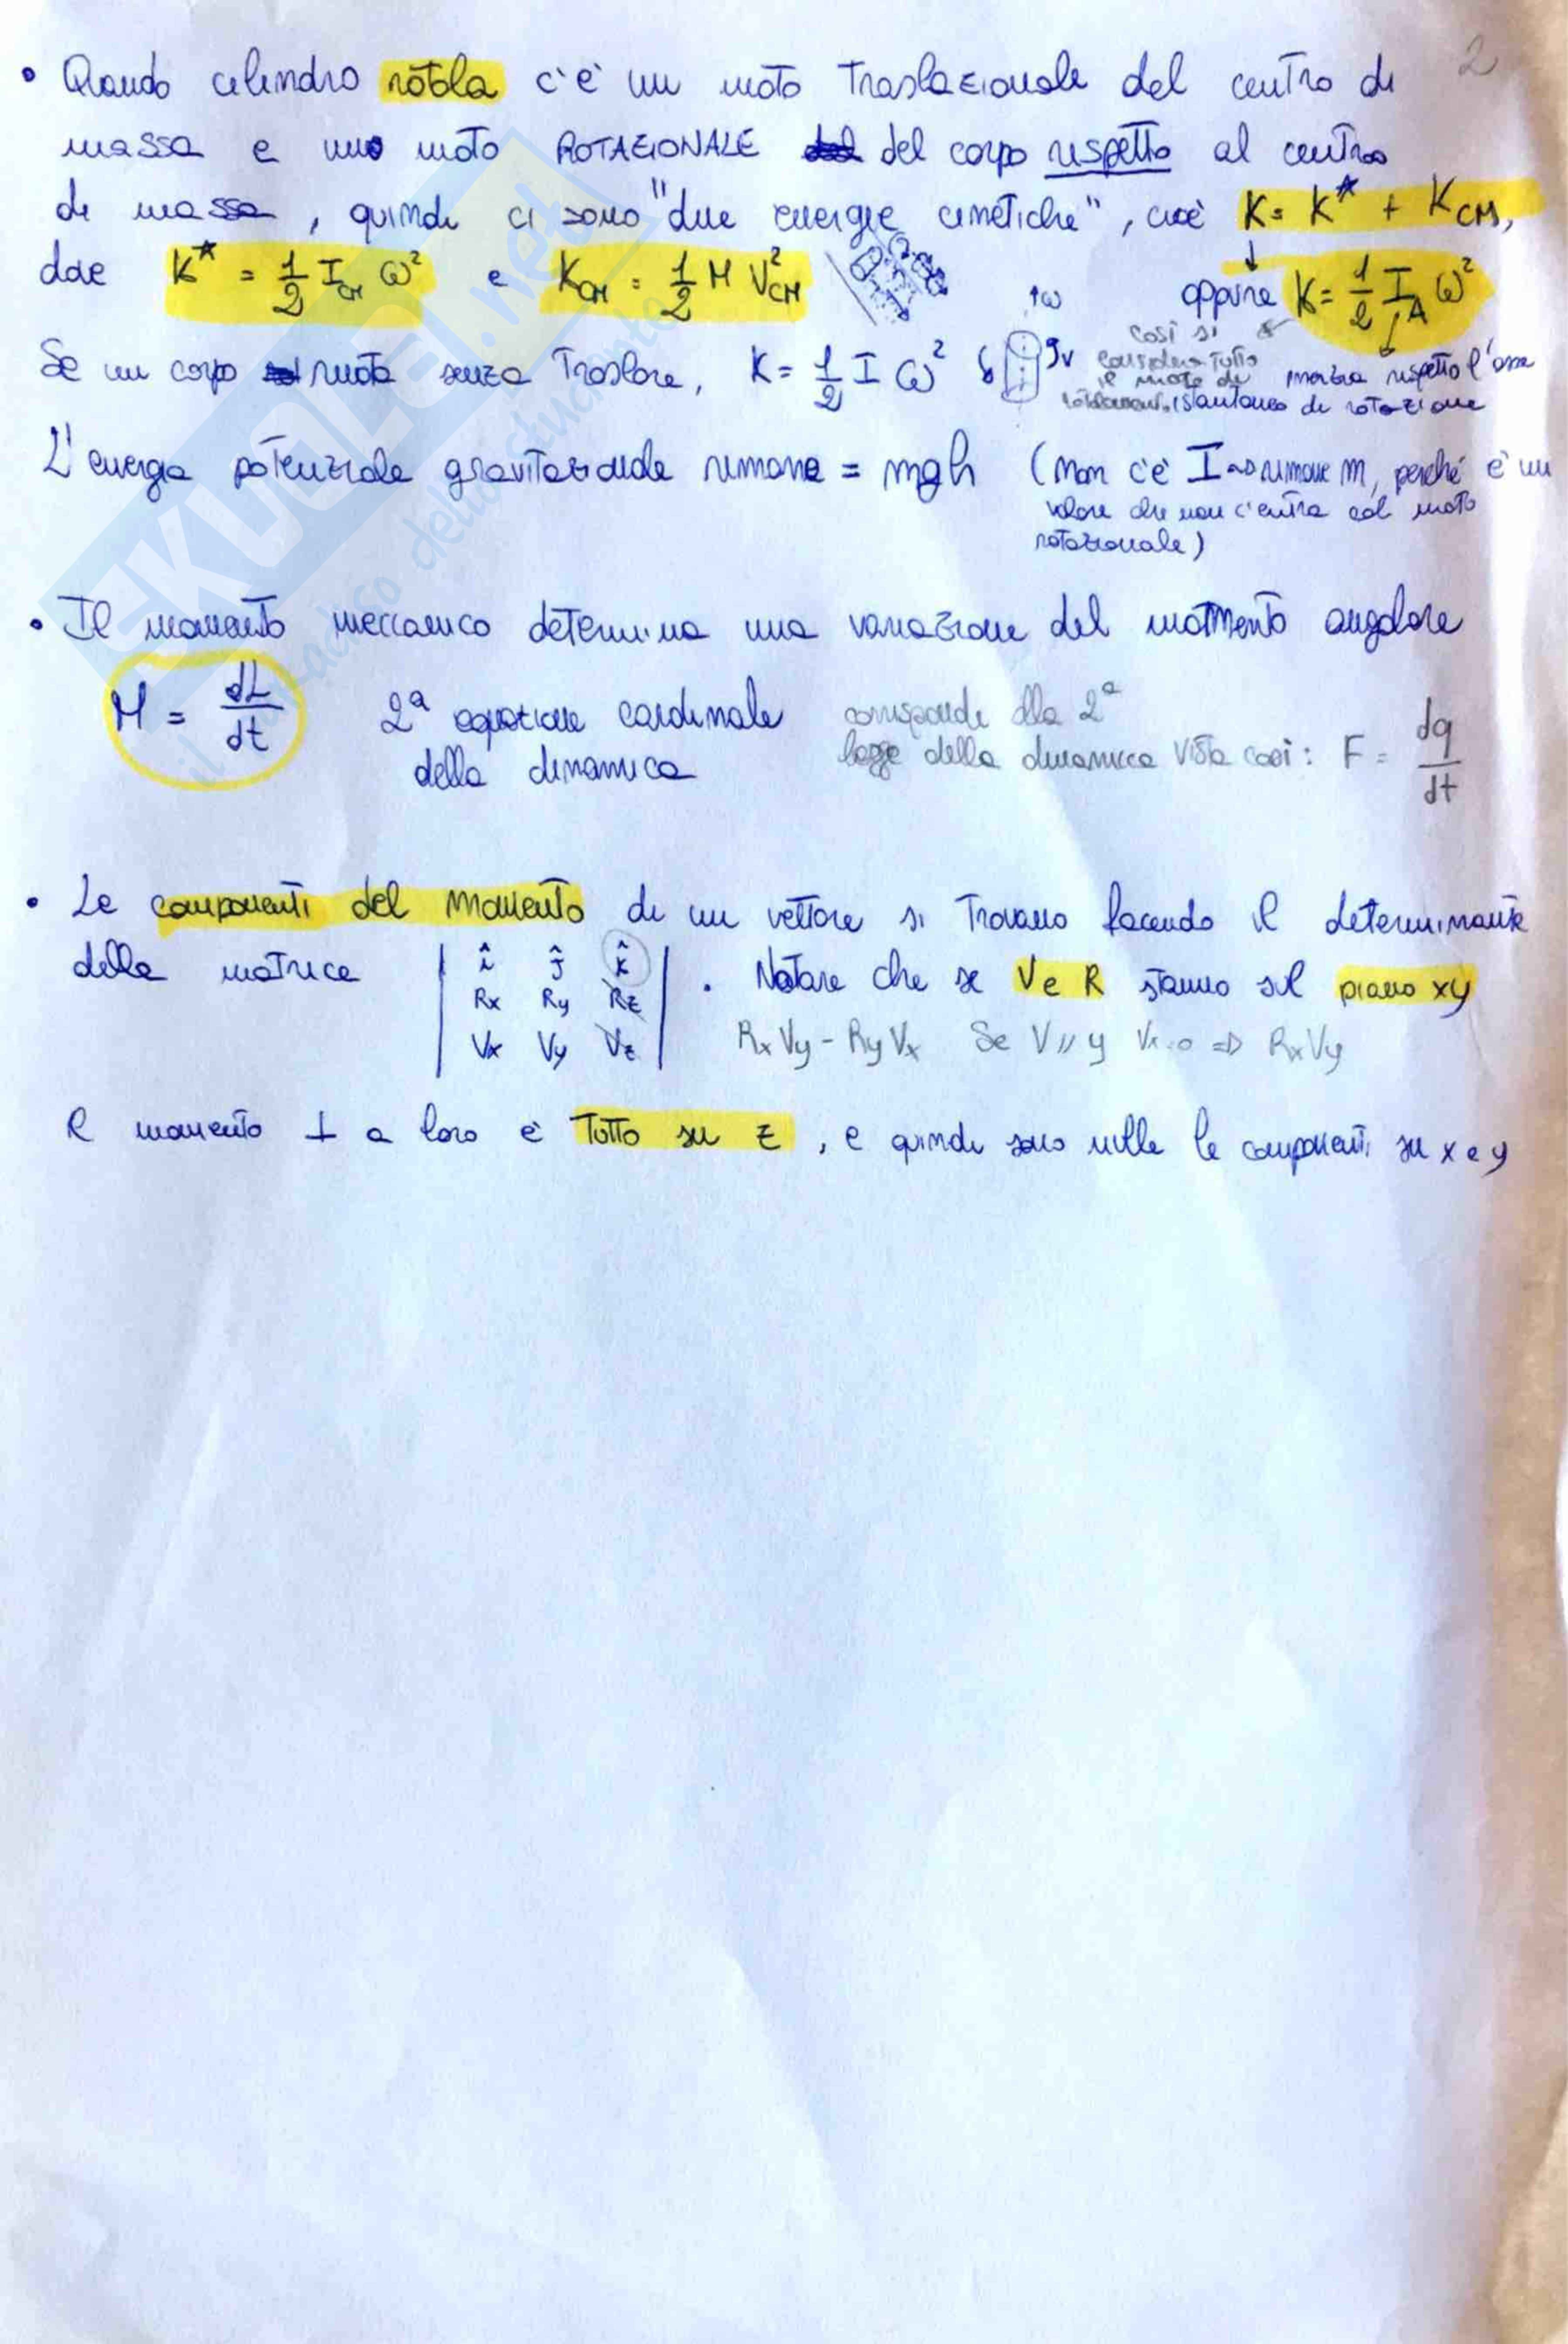 2
• Quando cilindro rotola c'è un moto traslazionale del centro di
massa e uno moto ROTAZIONALE del corpo rispetto al centro
di massa, quindi ci sono "due energie cinetiche", cioè K = K* + K_CM,
dove K* = 1/2 I_CM ω² e K_CM = 1/2 M V²_CM ↓ oppure K = 1/2 I_A ω²
Se un corpo ruota senza traslare, K = 1/2 I ω²
↑ω
così si
considera tutto
il moto di
rotolamento
inerzia rispetto l'asse
istantaneo di rotazione
L'energia potenziale gravitazionale rimane = mgh (non c'è I → rimane m, perché è un
valore che non c'entra col moto
rotazionale)
• Il momento meccanico determina una variazione del momento angolare
M = dL/dt 2ª equazione cardinale
della dinamica
corrisponde alla 2ª
legge della dinamica vista così: F = dq/dt
• Le componenti del momento di un vettore si trovano facendo il determinante
della matrice | î ĵ k̂ | . Notare che se V e R stanno sul piano xy
Rx Ry Rz
Vx Vy Vz
RxVy - RyVx Se V // y Vx=0 ⇒ RxVy
il momento ⊥ a loro è tutto su z, e quindi sono nulle le componenti su x e y
SKUOLA.net